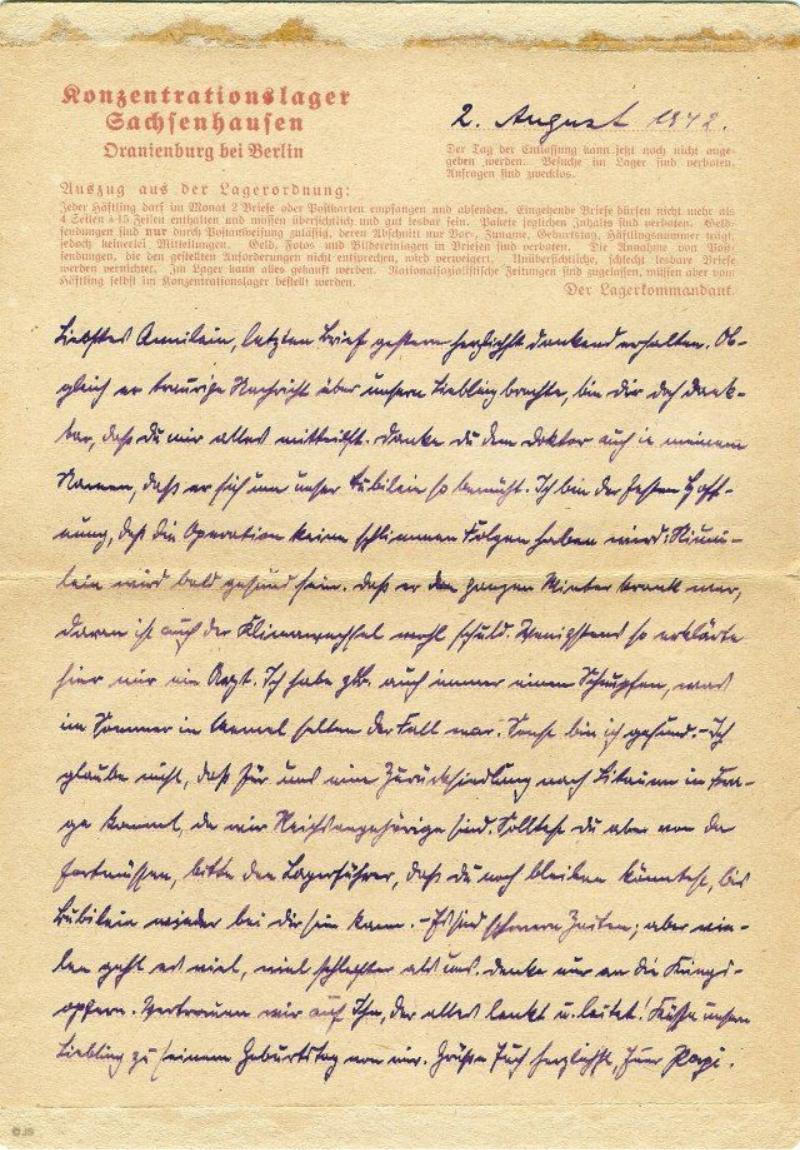 Konzentrationslager
Sachsenhausen
Oranienburg bei Berlin
2. August 1942.
Der Tag der Entlassung kann jetzt noch nicht ange-
geben werden. Besuche im Lager sind verboten.
Anfragen sind zwecklos.
Auszug aus der Lagerordnung:
Jeder Häftling darf im Monat 2 Briefe oder Postkarten empfangen und absenden. Eingehende Briefe dürfen nicht mehr als
4 Seiten à 15 Zeilen enthalten und müssen übersichtlich und gut lesbar sein. Pakete jeglichen Inhalts sind verboten. Geld-
sendungen sind nur durch Postanweisung zulässig, deren Abschnitt nur Vor-, Zuname, Geburtstag, Häftlingsnummer trägt,
jedoch keinerlei Mitteilungen. Geld, Fotos und Bildereinlagen in Briefen sind verboten. Die Annahme von Post-
sendungen, die den gestellten Anforderungen nicht entsprechen, wird verweigert. Unübersichtliche, schlecht lesbare Briefe
werden vernichtet. Im Lager kann alles gekauft werden. Nationalsozialistische Zeitungen sind zugelassen, müssen aber vom
Häftling selbst im Konzentrationslager bestellt werden.
Der Lagerkommandant.
Liebstes Annilein, letzten Brief gestern herzlichst dankend erhalten. Ob-
gleich er traurige Nachricht über unsern Liebling brachte, bin dir doch dank-
bar, daß du mir alles mitteilst. Danke du dem Doktor auch in meinem
Namen, daß er sich um unser Bubilein so bemüht. Ich bin der festen Hoff-
nung, daß die Operation keine schlimmen Folgen haben wird:
lein wird bald gesund sein. Daß er den ganzen Winter krank war,
daran ist auch der Klimawechsel wohl schuld. Wenigstens so erklärte
hier mir ein Arzt. Ich habe z.B. auch immer einen Schnupfen, was
im Sommer in Memel selten der Fall war. Sonst bin ich gesund. – Ich
glaube nicht, daß für uns eine Zurücksiedlung nach Litauen in Fra-
ge kommt, da wir Reichsangehörige sind. Solltest du aber von da
fortmüssen, bitte den Lagerführer, daß du noch bleiben könntest, bis
Bubilein wieder bei dir sein kann. – Es sind schwere Zeiten; aber vie-
len geht es viel, viel schlechter als uns. Denke nur an die Kriegs-
opfern. Vertrauen wir auf Ihn, der alles lenkt u. leitet! Küsse unsern
Liebling zu seinem Geburtstag von mir. Grüße Euch herzlichst, Euer Papi.
© JS